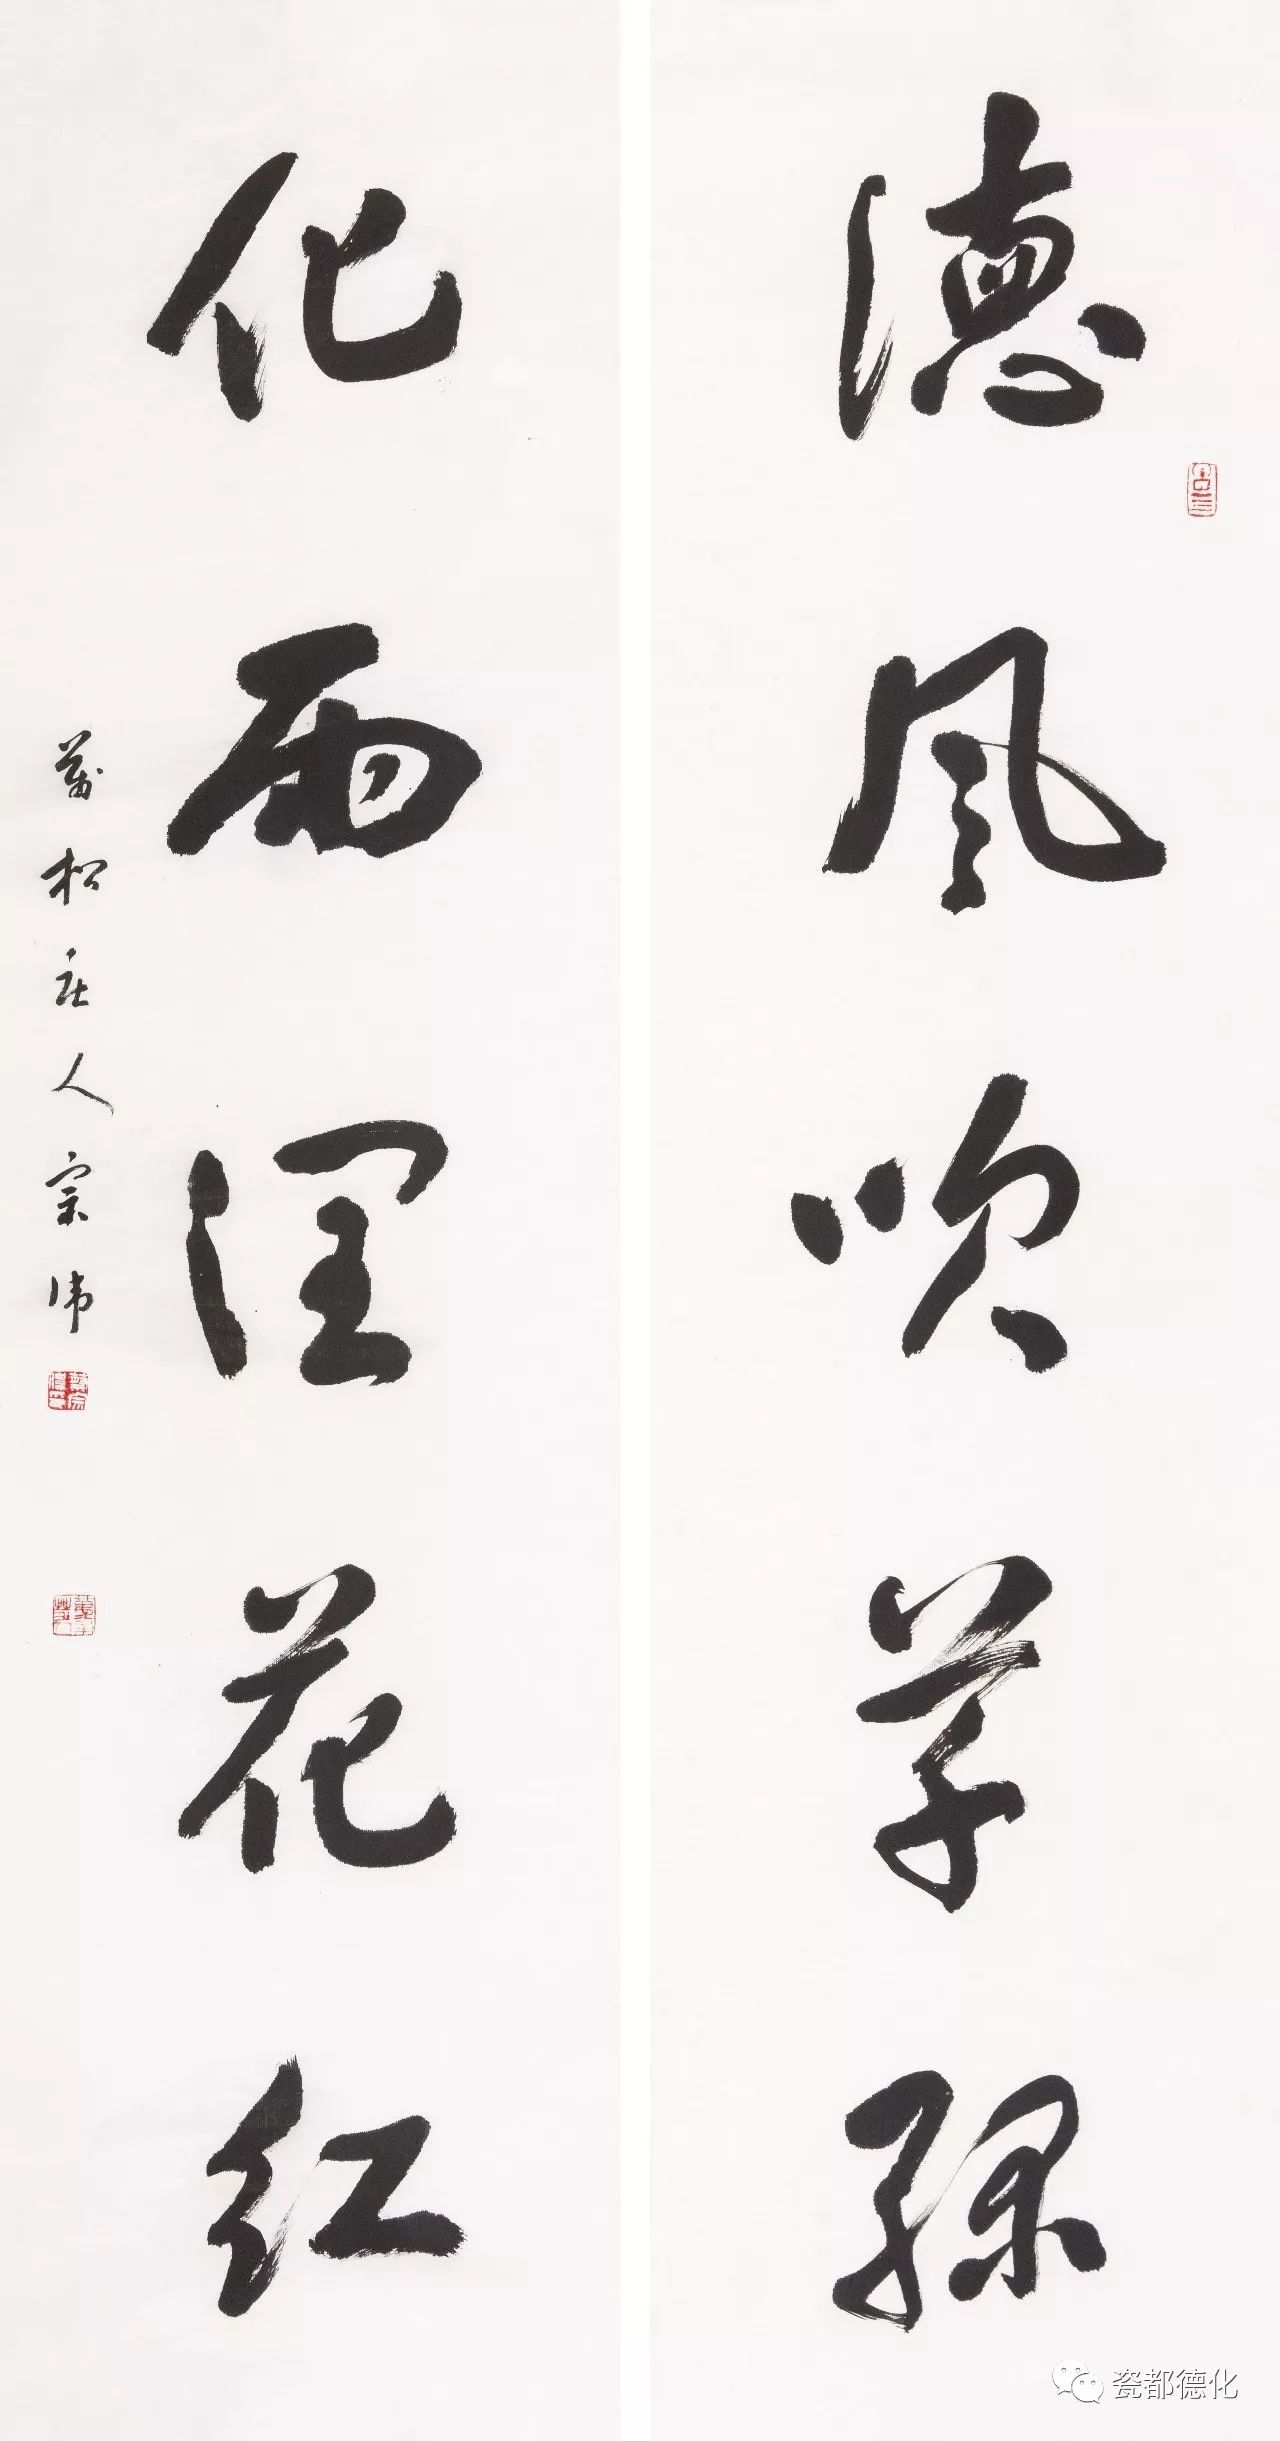 德风吹草绿
化雨润花红
萬松庄人宗伟
瓷都德化